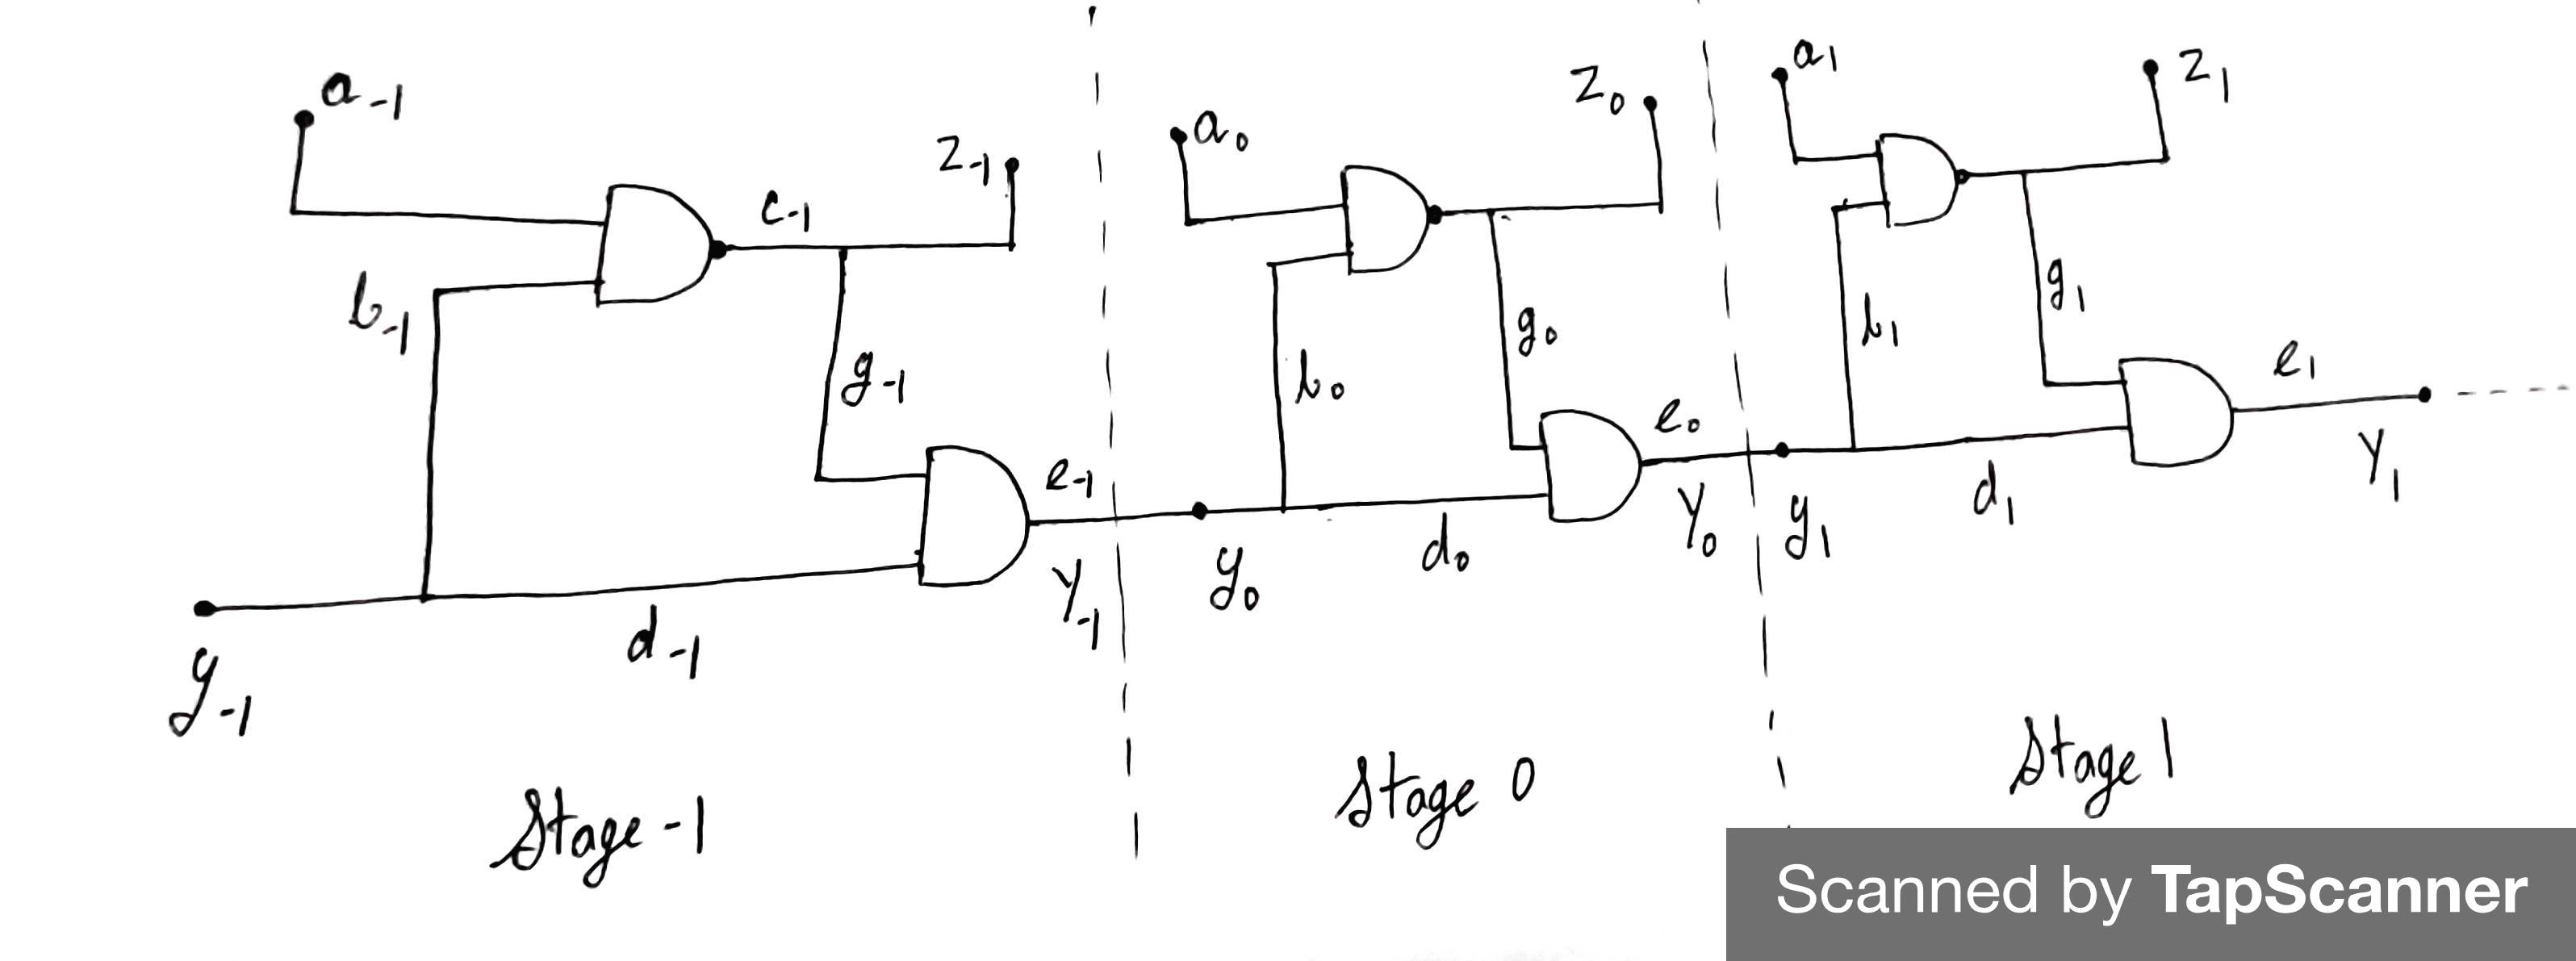 a-1
z-1
c-1
b-1
g-1
e-1
Y-1
d-1
y-1
Stage -1
a0
z0
b0
g0
e0
Y0
y0
d0
Stage 0
a1
z1
b1
g1
e1
Y1
y1
d1
Stage 1
Scanned by TapScanner